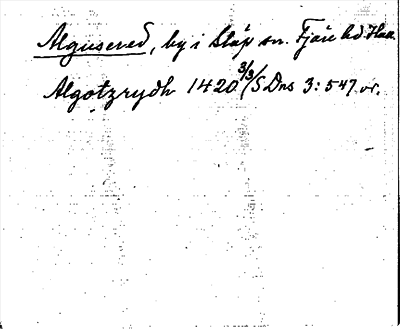 Algusered, by i Släp sn. Fjäre hd Hall.
Algotzrydh 1420 3/3 SDns 3:547 or.